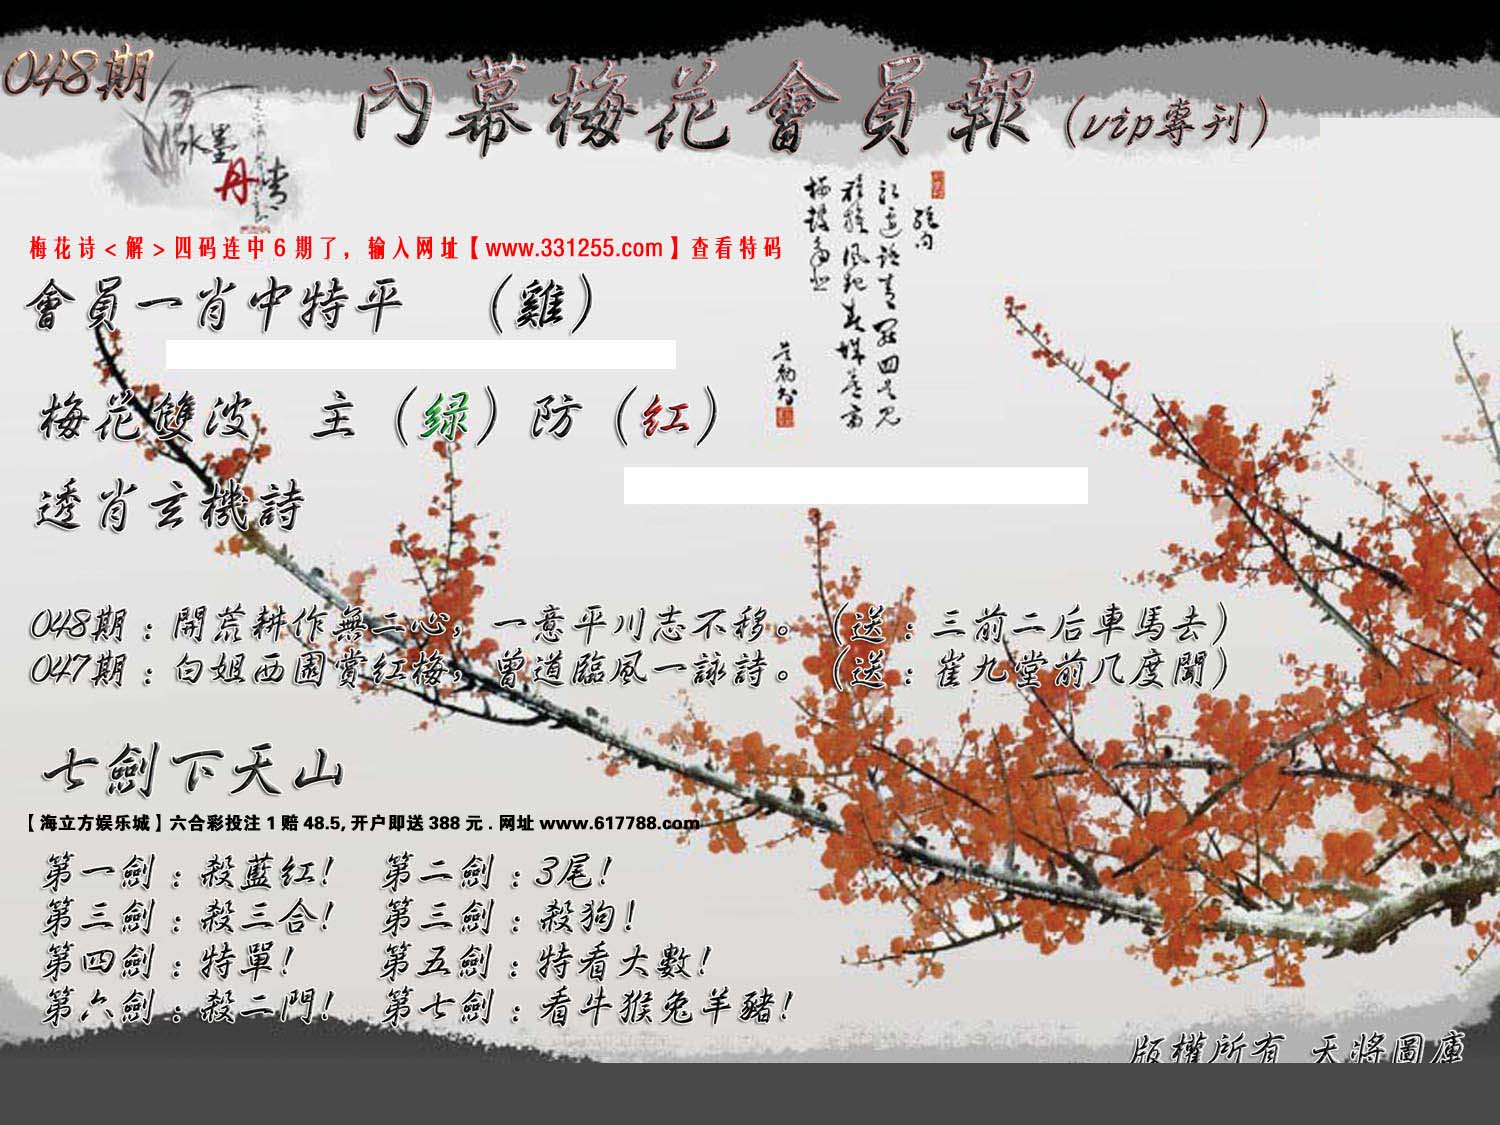 048期
內幕梅花會員報(vip專刊)
水墨
丹青
梅花诗<解>四码连中6期了，输入网址【www.331255.com】查看特码
會員一肖中特平 (雞)
梅花雙波 主(绿)防(红)
透肖玄機詩
048期：開荒耕作無二心，一意平川志不移。(送：三前二后車馬去)
047期：白姐西園賞红梅，曾道臨風一詠詩。(送：崔九堂前几度聞)
七劍下天山
【海立方娱乐城】六合彩投注1赔48.5,开户即送388元.网址www.617788.com
第一劍：殺藍红! 第二劍：3尾!
第三劍：殺三合! 第三劍：殺狗!
第四劍：特單! 第五劍：特看大數!
第六劍：殺二門! 第七劍：看牛猴兔羊豬!
版權所有 天將圖庫